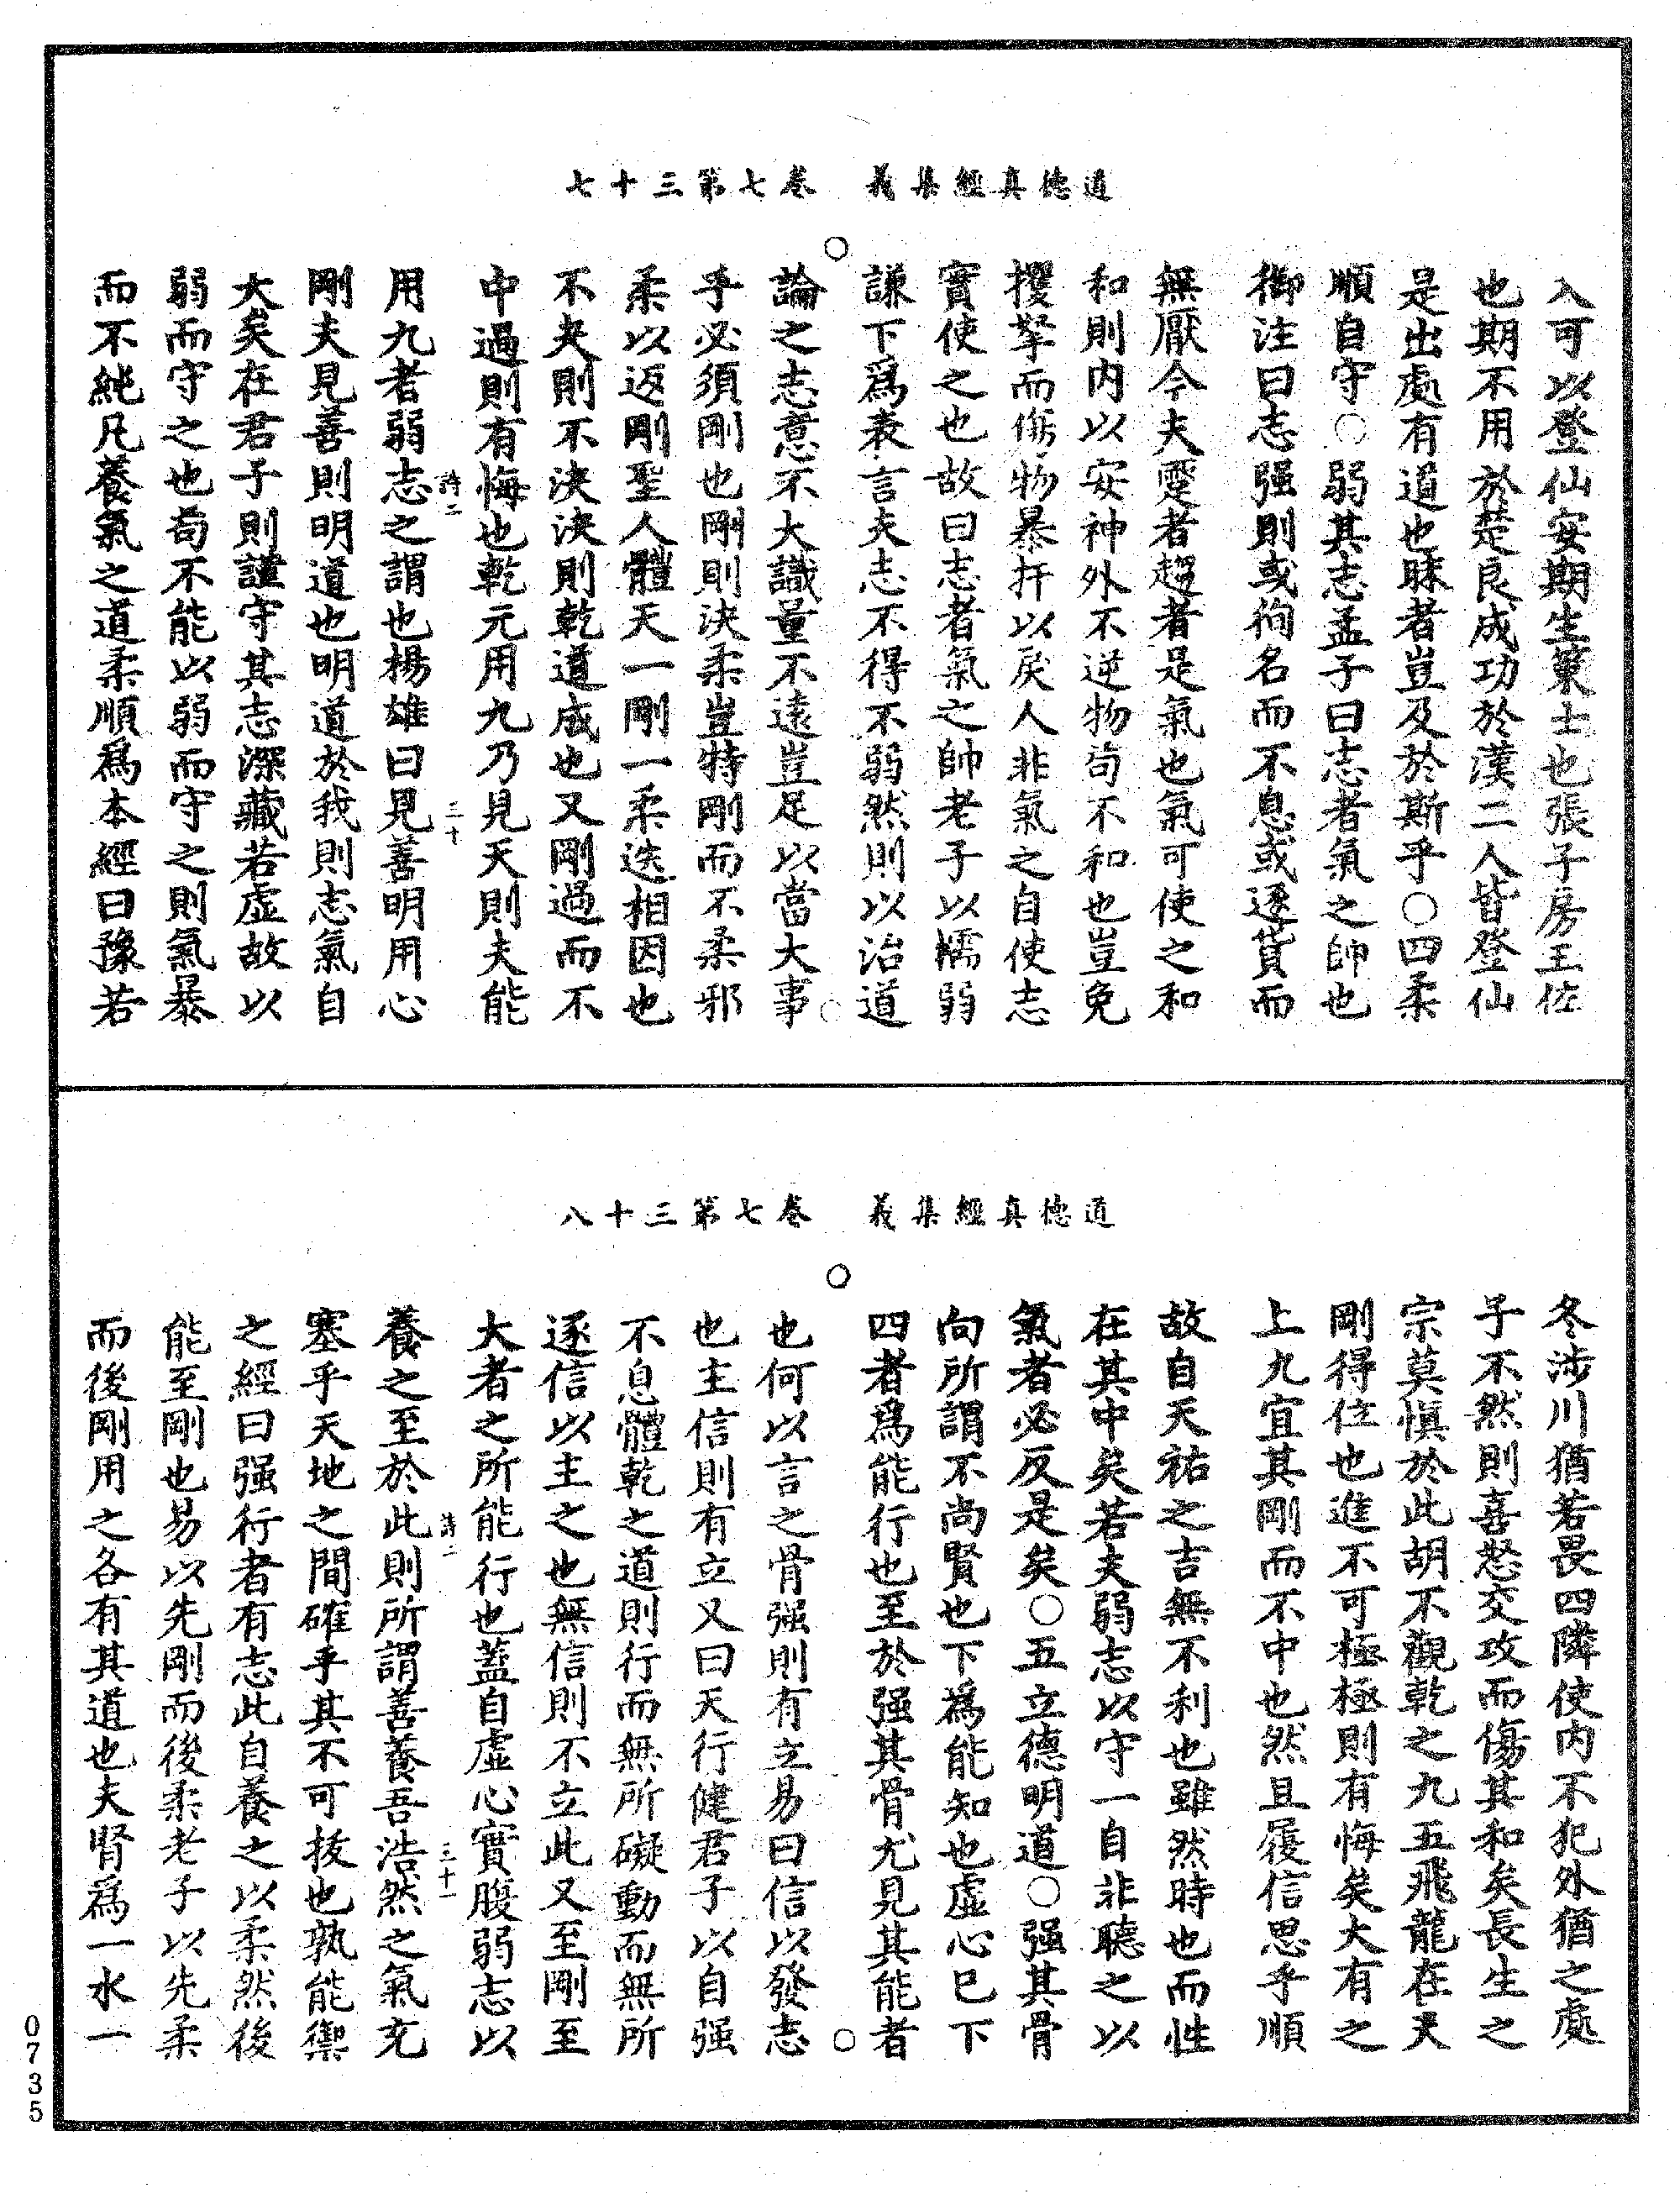 道德真經集義　卷七第三十七
入可以登仙安期生策士也張子房王佐
也期不用於楚良成功於漢二人皆登仙
是出處有道也昧者豈及於斯乎○四柔
順自守○弱其志孟子曰志者氣之帥也
御注曰志强則或徇名而不息或逐貨而
無厭今夫蹙者趨者是氣也氣可使之和
和則内以安神外不逆物苟不和也豈免
攫拏而傷物暴扞以戾人非氣之自使志
實使之也故曰志者氣之帥老子以懦弱
謙下爲表言夫志不得不弱然則以治道
論之志意不大識量不遠豈足以當大事
乎必須剛也剛則決柔豈特剛而不柔邪
柔以返剛聖人體天一剛一柔迭相因也
不夬則不決決則乾道成也又剛過而不
中過則有悔也乾元用九乃見天則夫能
詩二　三十
用九者弱志之謂也楊雄曰見善明用心
剛夫見善則明道也明道於我則志氣自
大矣在君子則謹守其志深藏若虛故以
弱而守之也苟不能以弱而守之則氣暴
而不純凡養氣之道柔順爲本經曰豫若
道德真經集義　卷七第三十八
冬涉川猶若畏四隣使内不犯外猶之處
子不然則喜怒交攻而傷其和矣長生之
宗莫慎於此胡不觀乾之九五飛龍在天
剛得位也進不可極極則有悔矣大有之
上九宜其剛而不中也然且履信思乎順
故自天祐之吉無不利也雖然時也而性
在其中矣若夫弱志以守一自非聽之以
氣者必反是矣○五立德明道○强其骨
向所謂不尚賢也下爲能知也虛心巳下
四者爲能行也至於强其骨尤見其能者
也何以言之骨强則有立易曰信以發志
也主信則有立又曰天行健君子以自强
不息體乾之道則行而無所礙動而無所
逐信以主之也無信則不立此又至剛至
大者之所能行也蓋自虛心實腹弱志以
詩二　三十一
養之至於此則所謂善養吾浩然之氣充
塞乎天地之間確乎其不可拔也孰能禦
之經曰强行者有志此自養之以柔然後
能至剛也易以先剛而後柔老子以先柔
而後剛用之各有其道也夫腎爲一水一
0735